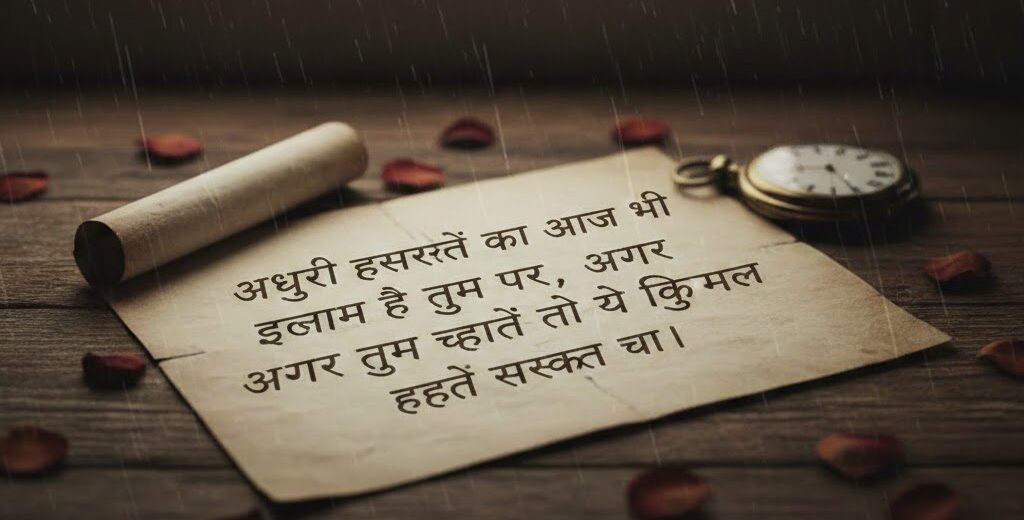 अधुरी हसरतें का आज भी
इलाम है तुम पर, अगर
अगर तुम च्हातें तो ये कुिमल
हहतें सस्कत चा।